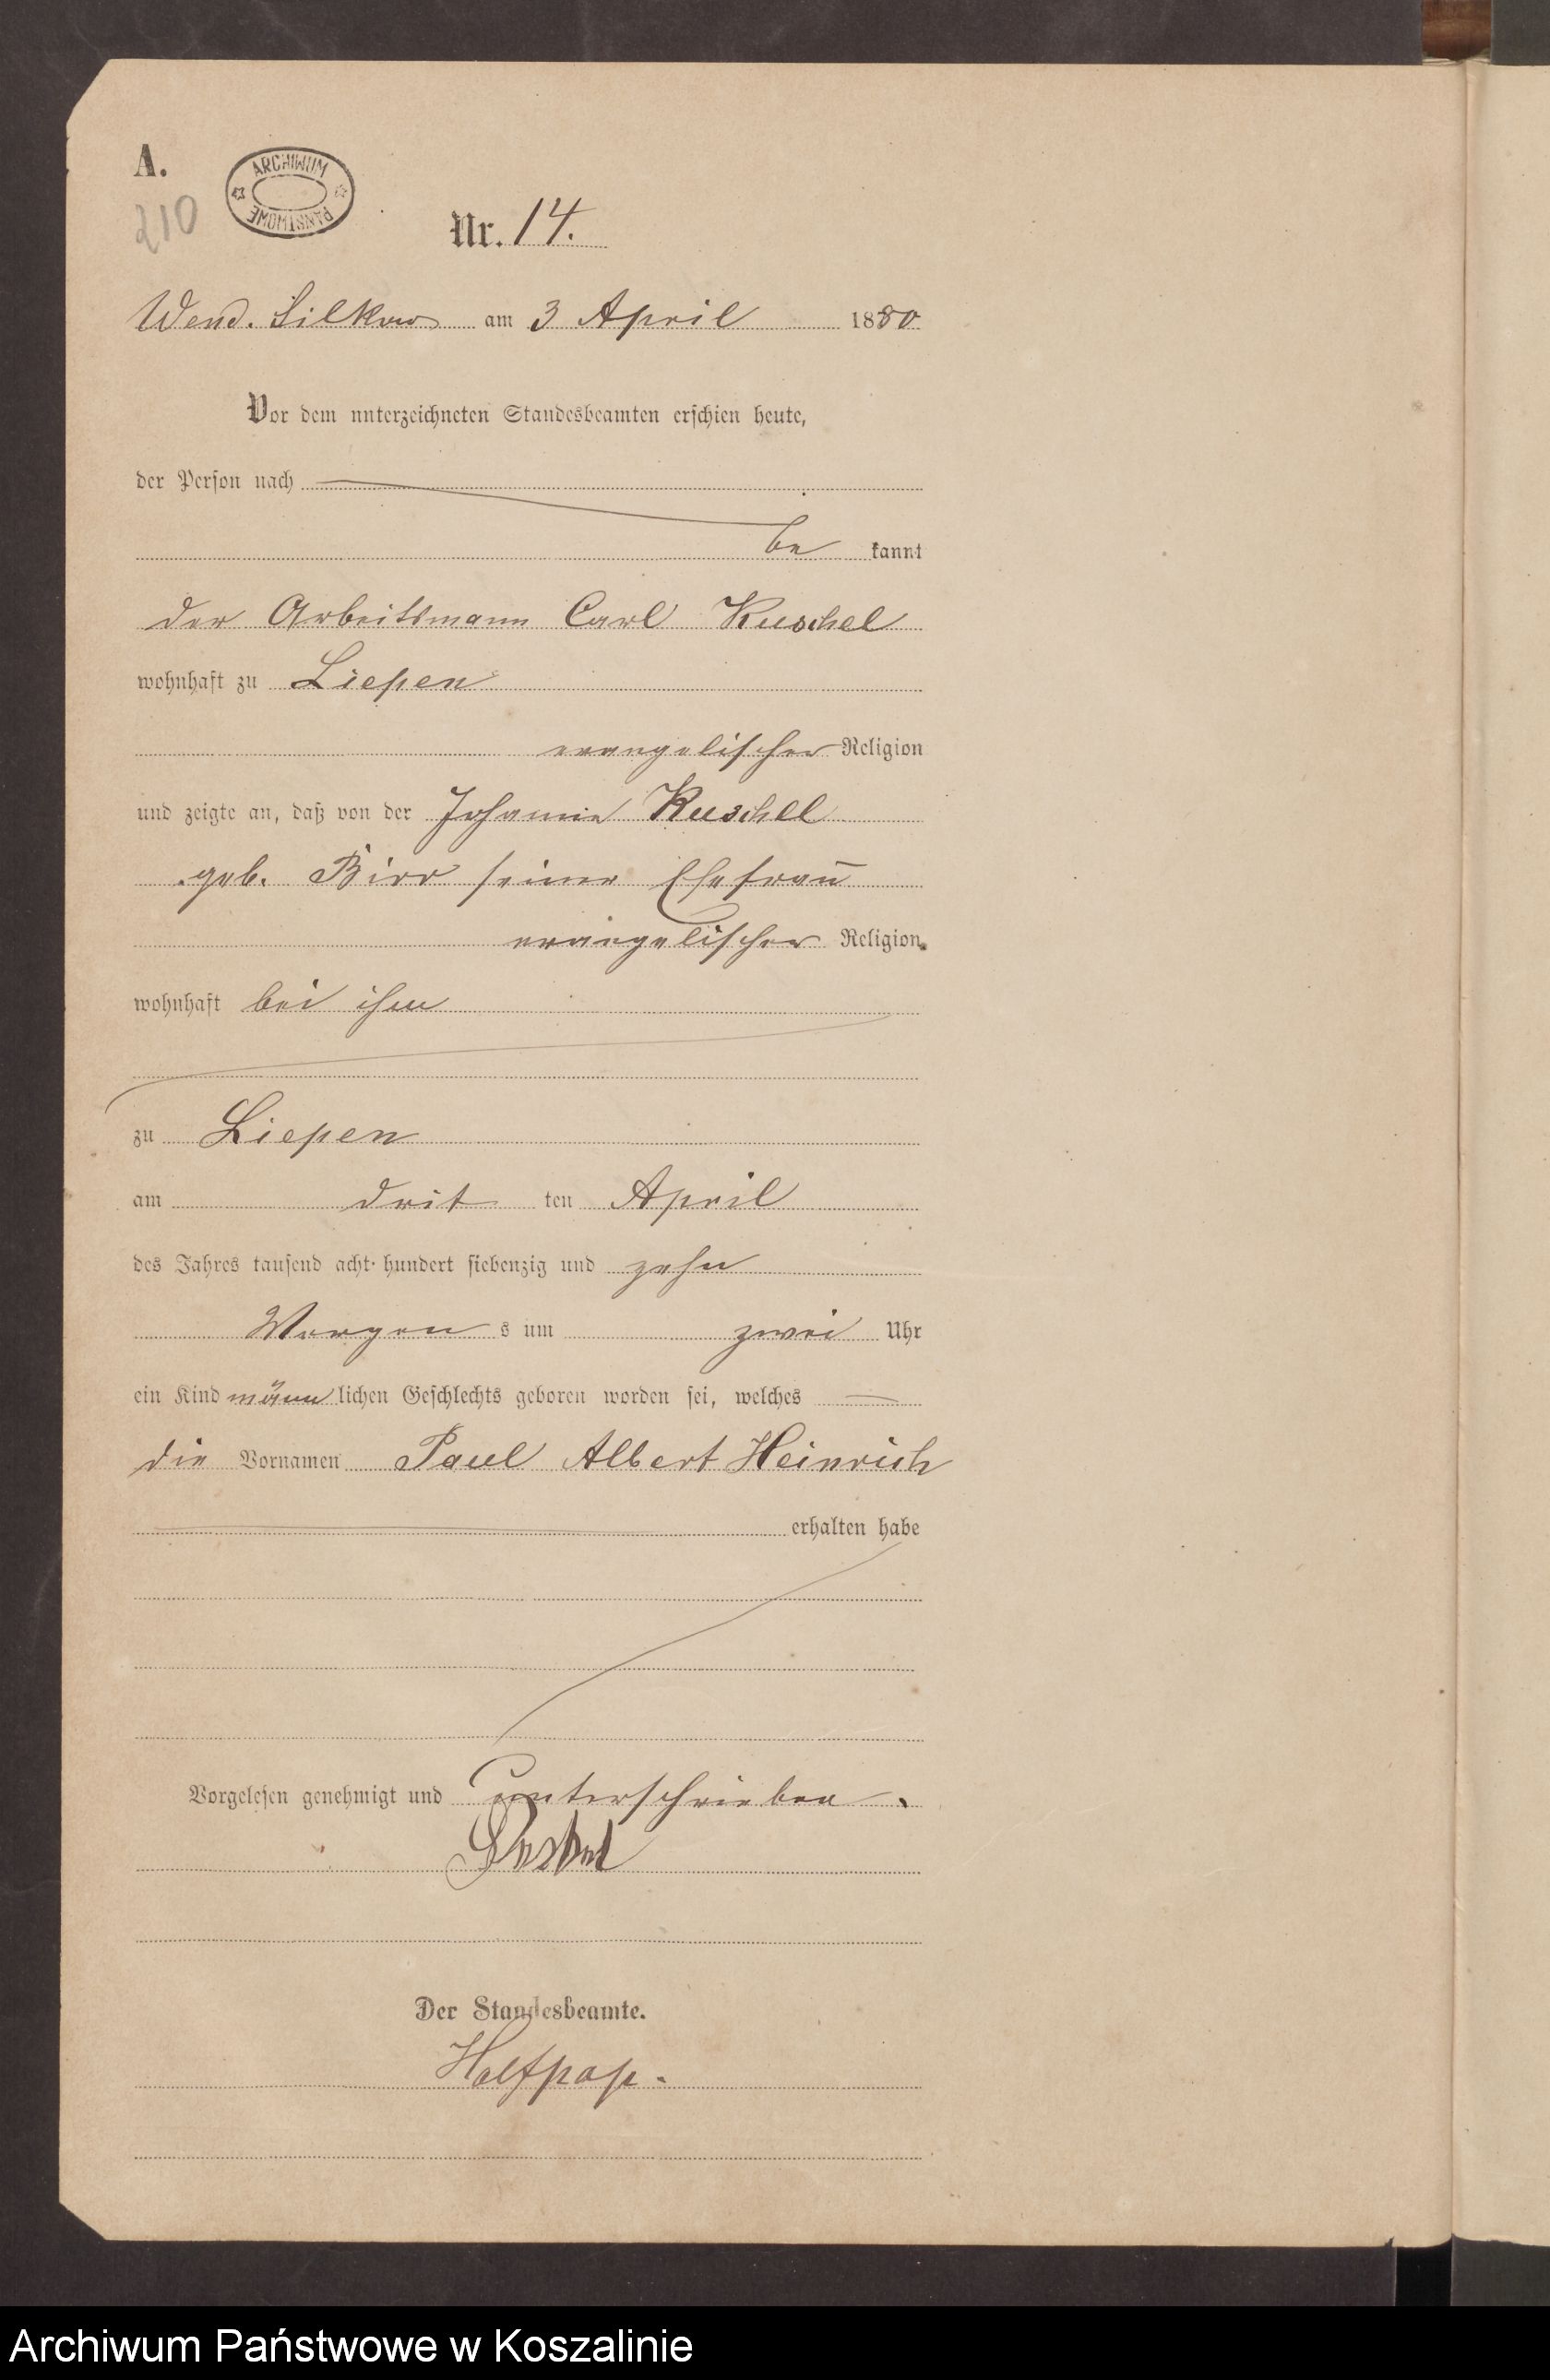 A.
210
ARCHIWUM
PAŃSTWOWE
Nr. 14.
Wend. Silkow am 3 April 1880
Vor dem unterzeichneten Standesbeamten erschien heute,
der Person nach
be kannt
der Arbeitsmann Carl Kuschel
wohnhaft zu Liepen
evangelischer Religion
und zeigte an, daß von der Johanne Kuschel
geb. Birr seiner Ehefrau
evangelischer Religion
wohnhaft bei ihm
zu Liepen
am drit ten April
des Jahres tausend acht hundert siebenzig und zehn
Morgen s um zwei Uhr
ein Kind männ lichen Geschlechts geboren worden sei, welches
die Vornamen Paul Albert Heinrich
erhalten habe
Vorgelesen genehmigt und unterschrieben.
Der Standesbeamte.
Archiwum Państwowe w Koszalinie